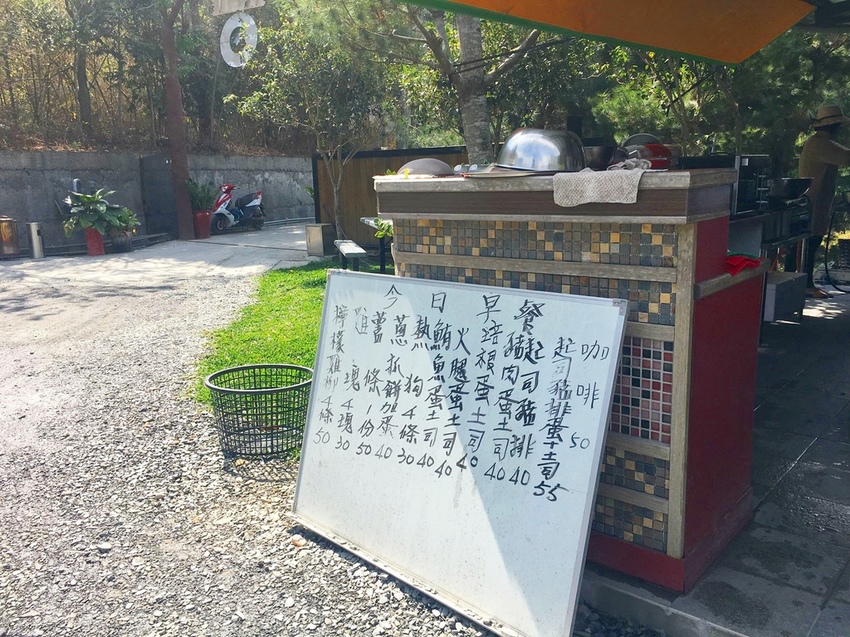 今日早餐
咖啡 50
起司豬排蛋土司 55
起司豬排 40
豬肉蛋土司 40
培根蛋土司 40
火腿蛋土司 40
鮪魚蛋土司 40
熱狗4條 30
蔥抓餅加蛋 40
薯條1份 50
雞塊4塊 30
檸檬雞柳4條 50